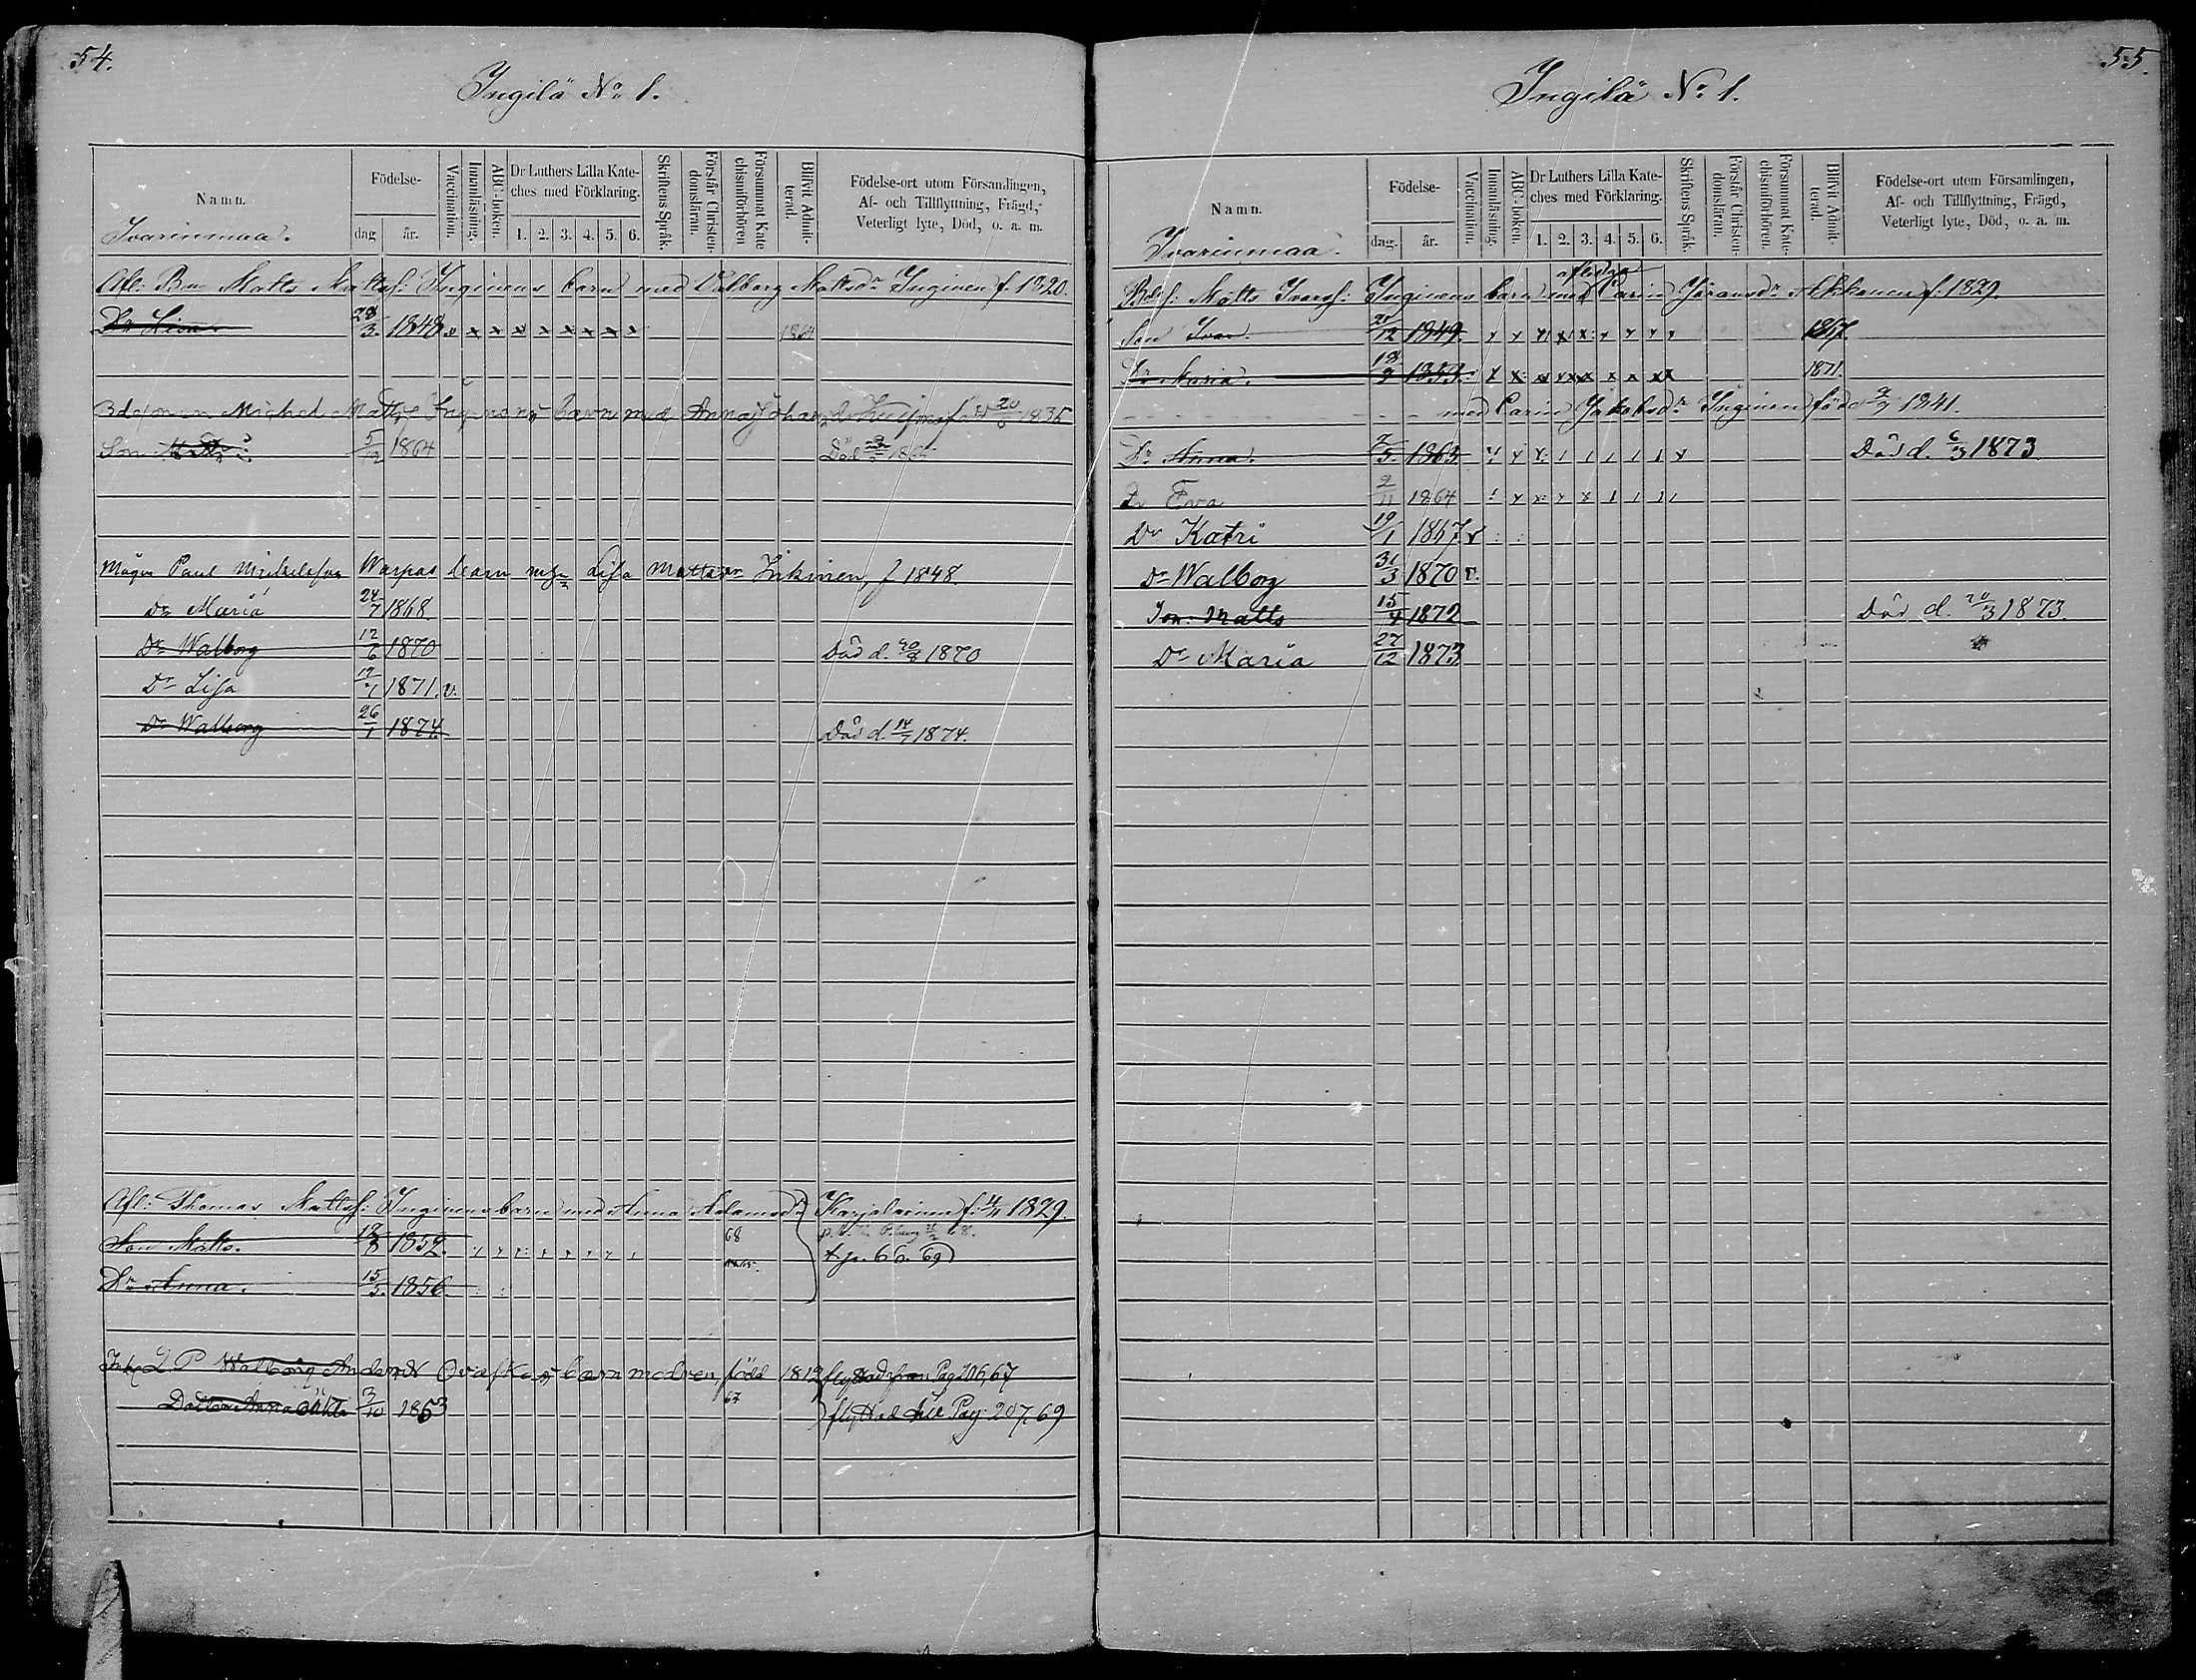 54.
Ingilä No 1.
Namn.
Födelse-
dag
år.
Vaccination.
Innanläsning.
ABC-boken.
Dr Luthers Lilla Kate-
ches med Förklaring.
1. 2. 3. 4. 5. 6.
Skriftens Språk.
Förstår Christen-
domsläran.
Försummat Kate-
chismiförhören
Blifvit Admit-
terad.
Födelse-ort utom Församlingen,
Af- och Tillflyttning, Frägd,
Veterligt lyte, Död, o. a. m.
Ivarinmaa.
Afl: Bn Matts Mattsf: Inginens barn med Valborg Mattsdr Inginen f. 1820.
Dr Lisa 28/3. 1848 x x x x x x x x x 1864
Bdesonen Michel Mattsf Inginens barn med Anna Johansdr född 20/6 1835
Son Matts 5/12 1864 Död 1865
Mågen Paul Mickelsson Warpas barn m. h. Lisa Mattsdr Inkinen, f 1848.
Dr Maria 24/7 1868.
Dr Walborg 12/6 1870 Död d. 20/8 1870
Dr Lisa 19/7 1871. v.
Dr Walborg 26/1 1874. Död d. 14/7 1874.
Afl: Thomas Mattsf: Inginens barn med Anna Adamsdr Karjalainen f: 4/11 1829.
Son Matts. 19/8 1852. 68
t. p. 66. 69
Dr Anna. 15/5. 1856.
Inh L P Walborg Andersdr Orafka, barnmodren, född 1812 flyttad från Pag 206, 67
Dotter Anna oäkta 3/10 1853 67 flyttad till Pag: 207. 69
55.
Ingilä No 1.
Namn.
Födelse-
dag.
år.
Vaccination.
Innanläsning.
ABC-boken.
Dr Luthers Lilla Kate-
ches med Förklaring.
1. 2. 3. 4. 5. 6.
Skriftens Språk.
Förstår Christen-
domsläran.
Försummat Kate-
chismiförhören.
Blifvit Admit-
terad.
Födelse-ort utom Församlingen,
Af- och Tillflyttning, Frägd,
Veterligt lyte, Död, o. a. m.
Ivarinmaa.
aflidna
Bdef: Matts Ivarsf: Inginens barn med Carin Göransdr Akkanen f: 1829.
Son Ivar. 20/12 1849. 1867.
Dr Maria. 18/2 1853. 1871.
med Carin Jakobsdr Inginen född 2/7 1841.
Dr Anna. 7/5. 1863. Död d. 6/3 1873
Dr Eva 9/11 1864
Dr Katri 19/1 1867 v
Dr Walborg 31/3 1870 v.
Son Matts 15/4 1872 Död d. 20/3 1873.
Dr Maria 27/12 1873